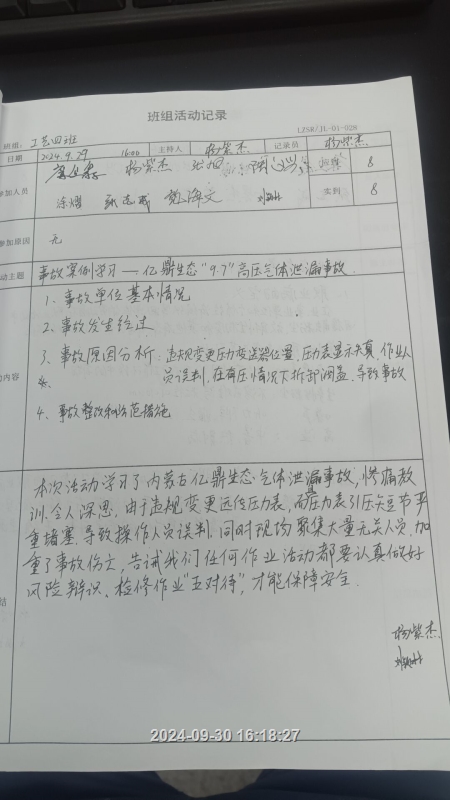 班组活动记录
LZSR/JL-01-028
班组: 工艺四班
日期 2024.9.29 16:00 主持人 杨紫杰 记录员 杨紫杰
参加人员 杨紫杰 8
涂熠 魏海文 实到 8
参加原因 无
动主题 事故案例学习——亿鼎生态"9.7"高压气体泄漏事故.
动内容 1、事故单位基本情况
2、事故发生经过
3、事故原因分析: 违规变更压力变送器位置,压力表显示失真,作业人
员误判,在有压情况下拆卸阀盖,导致事故
4、事故整改和防范措施
本次活动学习了内蒙古亿鼎生态气体泄漏事故,惨痛教
训,令人深思,由于违规变更远传压力表,而压力表引压关节严
重堵塞,导致操作人员误判,同时现场聚集大量无关人员,加
重了事故伤亡,告诫我们任何作业活动都要认真做好
结 风险辨识、检修作业"五对待",才能保障安全.
杨紫杰.
2024-09-30 16:18:27